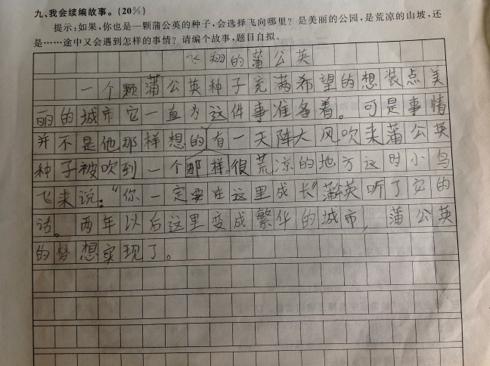 九、我会续编故事。(20%)
提示:如果,你也是一颗蒲公英的种子,会选择飞向哪里?是美丽的公园,是荒凉的山坡,还
是……途中又会遇到怎样的事情?请编个故事,题目自拟。
飞翔的蒲公英
一个颗蒲公英种子充满希望的想装点美
丽的城市它一直为这件事准备着。可是事情
并不是他那样想的有一天阵大风吹来蒲公英
种子被吹到一个那样很荒凉的地方这时小鸟
飞来说:“你一定要在这里成长”蒲英听了它的
话。两年以后这里变成繁华的城市,蒲公英
的梦想实现了。